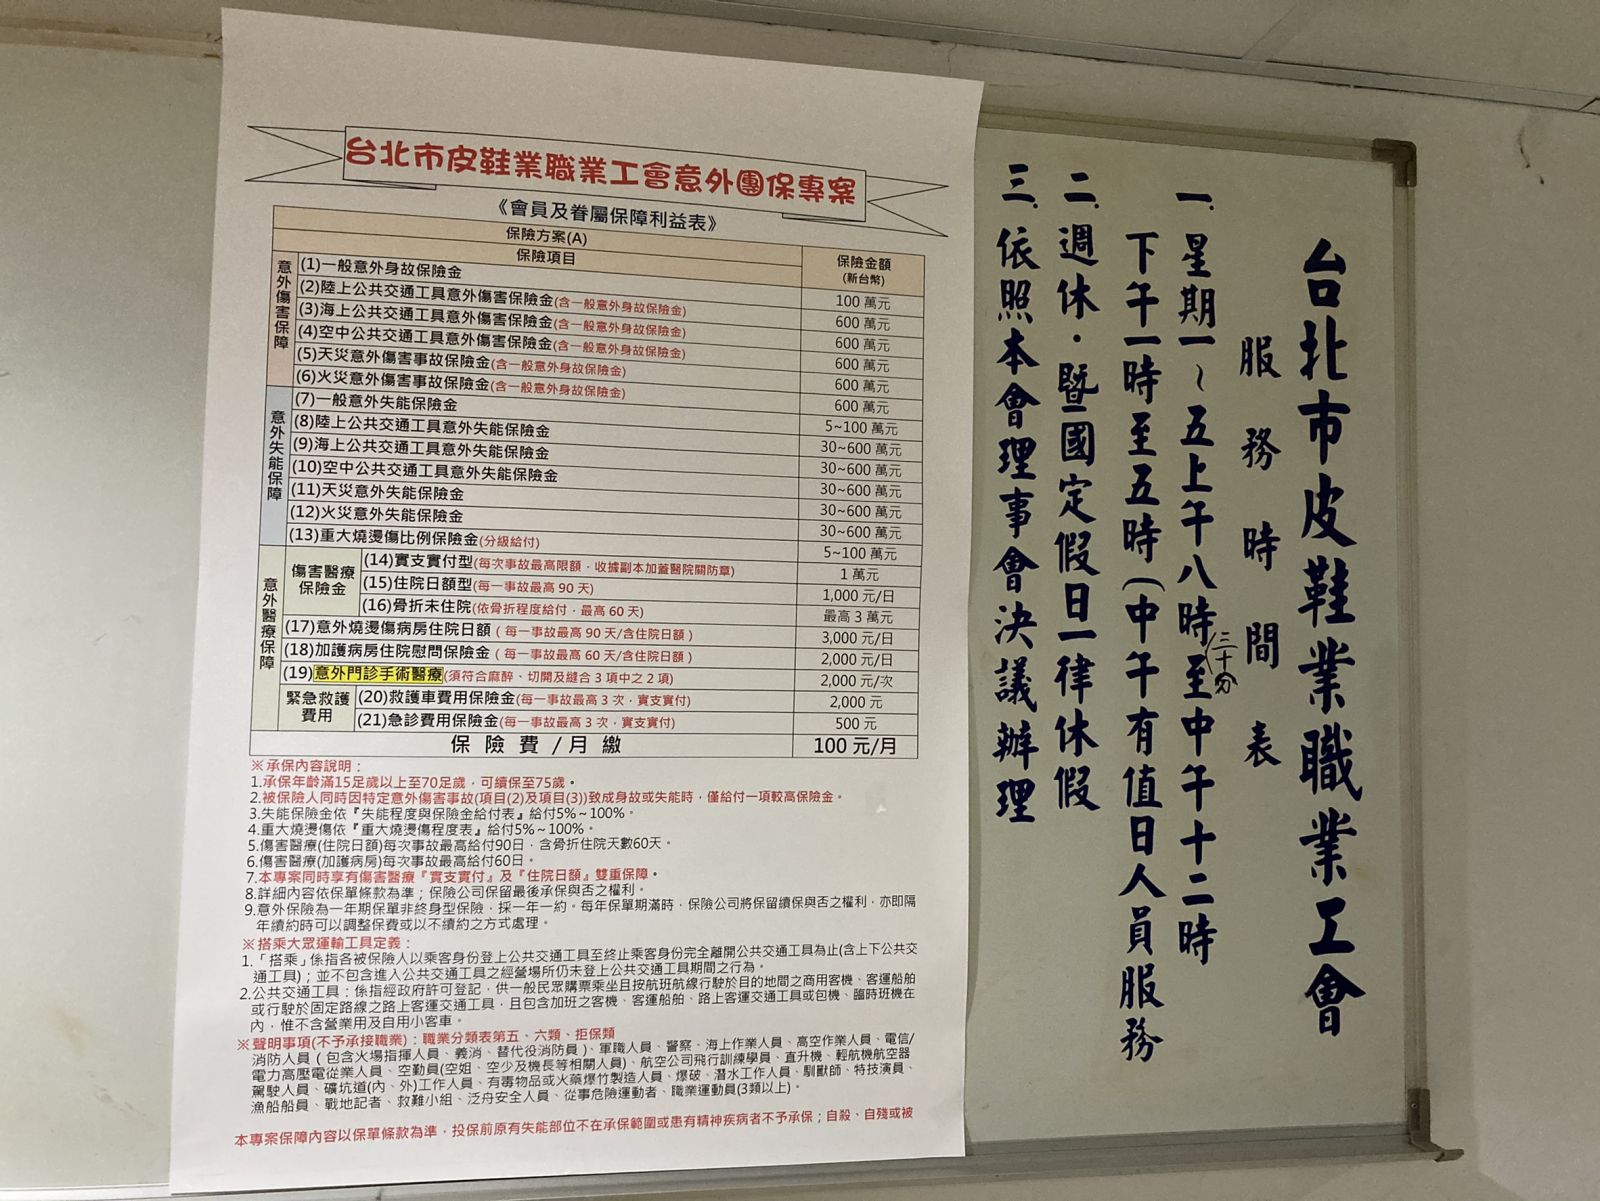 台北市皮鞋業職業工會意外團保專案
《會員及眷屬保障利益表》
保險方案(A)
保險項目
保險金額
(新台幣)
意外傷害保障
(1)一般意外身故保險金
100 萬元
(2)陸上公共交通工具意外傷害保險金(含一般意外身故保險金)
600 萬元
(3)海上公共交通工具意外傷害保險金(含一般意外身故保險金)
600 萬元
(4)空中公共交通工具意外傷害保險金(含一般意外身故保險金)
600 萬元
(5)天災意外傷害事故保險金(含一般意外身故保險金)
600 萬元
(6)火災意外傷害事故保險金(含一般意外身故保險金)
600 萬元
意外失能保障
(7)一般意外失能保險金
5~100 萬元
(8)陸上公共交通工具意外失能保險金
30~600 萬元
(9)海上公共交通工具意外失能保險金
30~600 萬元
(10)空中公共交通工具意外失能保險金
30~600 萬元
(11)天災意外失能保險金
30~600 萬元
(12)火災意外失能保險金
30~600 萬元
(13)重大燒燙傷比例保險金(分級給付)
5~100 萬元
意外醫療保障
傷害醫療
保險金
(14)實支實付型(每次事故最高限額，收據副本加蓋醫院關防章)
1 萬元
(15)住院日額型(每一事故最高 90 天)
1,000 元/日
(16)骨折未住院(依骨折程度給付，最高 60 天)
最高 3 萬元
(17)意外燒燙傷病房住院日額 ( 每一事故最高 90 天/含住院日額 )
3,000 元/日
(18)加護病房住院慰問保險金 ( 每一事故最高 60 天/含住院日額 )
2,000 元/日
(19)意外門診手術醫療(須符合麻醉、切開及縫合 3 項中之 2 項)
2,000 元/次
緊急救護
費用
(20)救護車費用保險金(每一事故最高 3 次，實支實付)
2,000 元
(21)急診費用保險金(每一事故最高 3 次，實支實付)
500 元
保 險 費 / 月 繳
100 元/月
※承保內容說明：
1.承保年齡滿15足歲以上至70足歲，可續保至75歲。
2.被保險人同時因特定意外傷害事故(項目(2)及項目(3))致成身故或失能時，僅給付一項較高保險金。
3.失能保險金依『失能程度與保險金給付表』給付5%~100%。
4.重大燒燙傷依『重大燒燙傷程度表』給付5%~100%。
5.傷害醫療(住院日額)每次事故最高給付90日，含骨折住院天數60天。
6.傷害醫療(加護病房)每次事故最高給付60日。
7.本專案同時享有傷害醫療『實支實付』及『住院日額』雙重保障。
8.詳細內容依保單條款為準；保險公司保留最後承保與否之權利。
9.意外保險為一年期保單非終身型保險，採一年一約。每年保單期滿時，保險公司將保留續保與否之權利，亦即隔
年續約時可以調整保費或以不續約之方式處理。
※搭乘大眾運輸工具定義：
1.「搭乘」係指各被保險人以乘客身份登上公共交通工具至終止乘客身份完全離開公共交通工具為止(含上下公共交
通工具)；並不包含進入公共交通工具之經營場所仍未登上公共交通工具期間之行為。
2.公共交通工具：係指經政府許可登記，供一般民眾購票乘坐且按航班航線行駛於目的地間之商用客機、客運船舶
或行駛於固定路線之路上客運交通工具，且包含加班之客機、客運船舶、路上客運交通工具或包機、臨時班機在
內，惟不含營業用及自用小客車。
※聲明事項(不予承接職業)：職業分類表第五、六類、拒保類
消防人員 ( 包含火場指揮人員、義消、替代役消防員 )、軍職人員、警察、海上作業人員、高空作業人員、電信/
電力高壓電從業人員、空勤員(空姐、空少及機長等相關人員)、航空公司飛行訓練學員、直升機、輕航機航空器
駕駛人員、礦坑道(內、外)工作人員、有毒物品或火藥爆竹製造人員、爆破、潛水工作人員、馴獸師、特技演員、
漁船船員、戰地記者、救難小組、泛舟安全人員、從事危險運動者、職業運動員(3類以上)。
本專案保障內容以保單條款為準，投保前原有失能部位不在承保範圍或患有精神疾病者不予承保；自殺、自殘或被
台北市皮鞋業職業工會
服務時間表
一.星期一~五上午八時三十分至中午十二時
下午一時至五時(中午有值日人員服務
二.週休．暨國定假日一律休假
三.依照本會理事會決議辦理